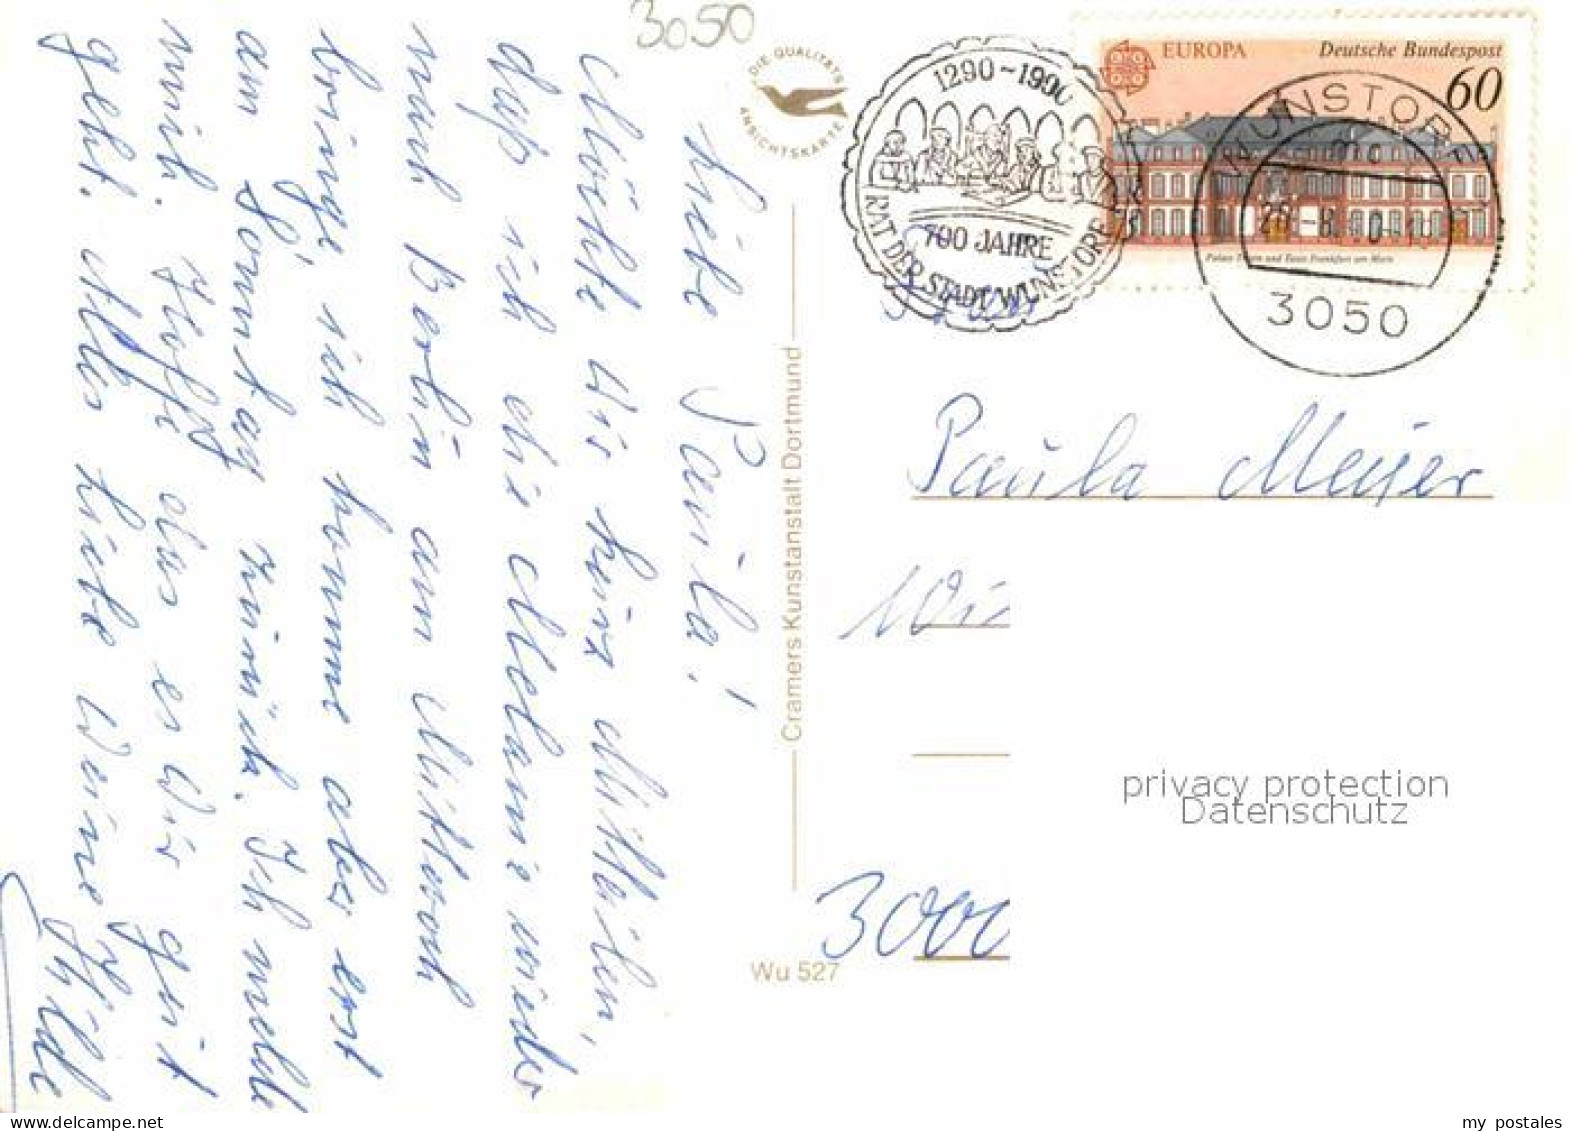 3050
DIE QUALITÄTS
ANSICHTSKARTE
1290-1990
700 JAHRE
RAT DER STADT WUNSTORF
EUROPA
Deutsche Bundespost
60
Palais Thurn und Taxis Frankfurt am Main
WUNSTORF
3050
Liebe Paula!
Möchte dir kurz Mitteilen,
daß ich die Melanie wieder
nach Berlin am Mittwoch
bringe, ich komme aber erst
am Sonntag zurück. Ich melde
mich. Hoffe das es Dir gut
geht. Alles Liebe Deine Hilde
Cramers Kunstanstalt Dortmund
Wu 527
Paula Meyer
3000
privacy protection
Datenschutz
my postales